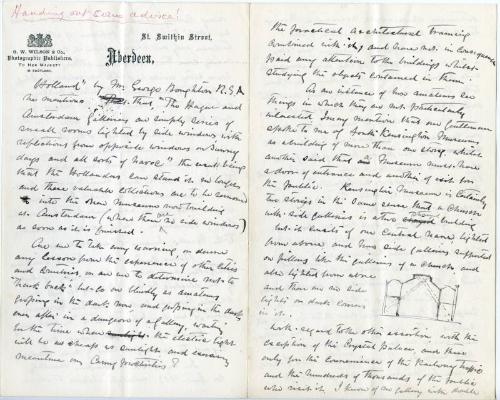 Handing out some advice!
St. Swithin Street,
G. W. WILSON & Co.,
Photographic Publishers,
TO HER MAJESTY
IN SCOTLAND.
Aberdeen,
Holland" by Mr. George Boughton R.S.A
he mentions that "The Hague and
Amsterdam galleries are simply series of
small rooms lighted by side windows with
reflections from opposite windows on sunny
days and all sorts of havoc" the result being
that the Hollanders can stand it no longer
and these valuable collections are to be removed
into the New Museum now building
at Amsterdam (where there are no side windows)
as soon as it is finished.
Are we to take any warning, or derive
any lesson from the experience of other cities
and countries, or are we to determine not to
"hark back" but go on blindly as
groping in the dark now and groping in the dark
ever after in a dungeon of a gallery, waiting
for the time when the electric light
will be as cheap as sunlight and exercising
meantime our Canny proclivities?
the practical Architectural training
combined with it, and have not in consequence
paid any attention to the buildings whilst
studying the objects contained in them.
As an instance of how amateurs see
things in which they are not particularly
interested I may mention that one Gentleman
spoke to me of South Kensington Museum
as a building of more than one story, whilst
another said that a Museum must have
a door of entrance and another of exit for
the public. Kensington Museum is certainly
two stories in the same sense that a Church
with side galleries is a two story building
but it consists of one Central nave lighted
from above and two side galleries supported
on pillars like the galleries of a Church, and
also lighted from above
and there are no side
lights or dark corners
in it.
With regard to the other assertion, with the
exception of the Crystal Palace, and there
only for the convenience of the Railway traffic
and the hundreds of thousands of the public
who visit it, I know of no gallery with double